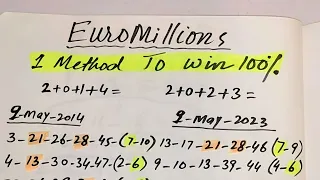 EuroMillions
1 Method To win 100%
2+0+1+4= 2+0+2+3=
9-may-2014 9-may-2023
3-21-26-28-45-(7-10) 13-17-21-28-46 (7-9)
4-13-30-34-47-(2-6) 9-10-13-39-44 (4-6)